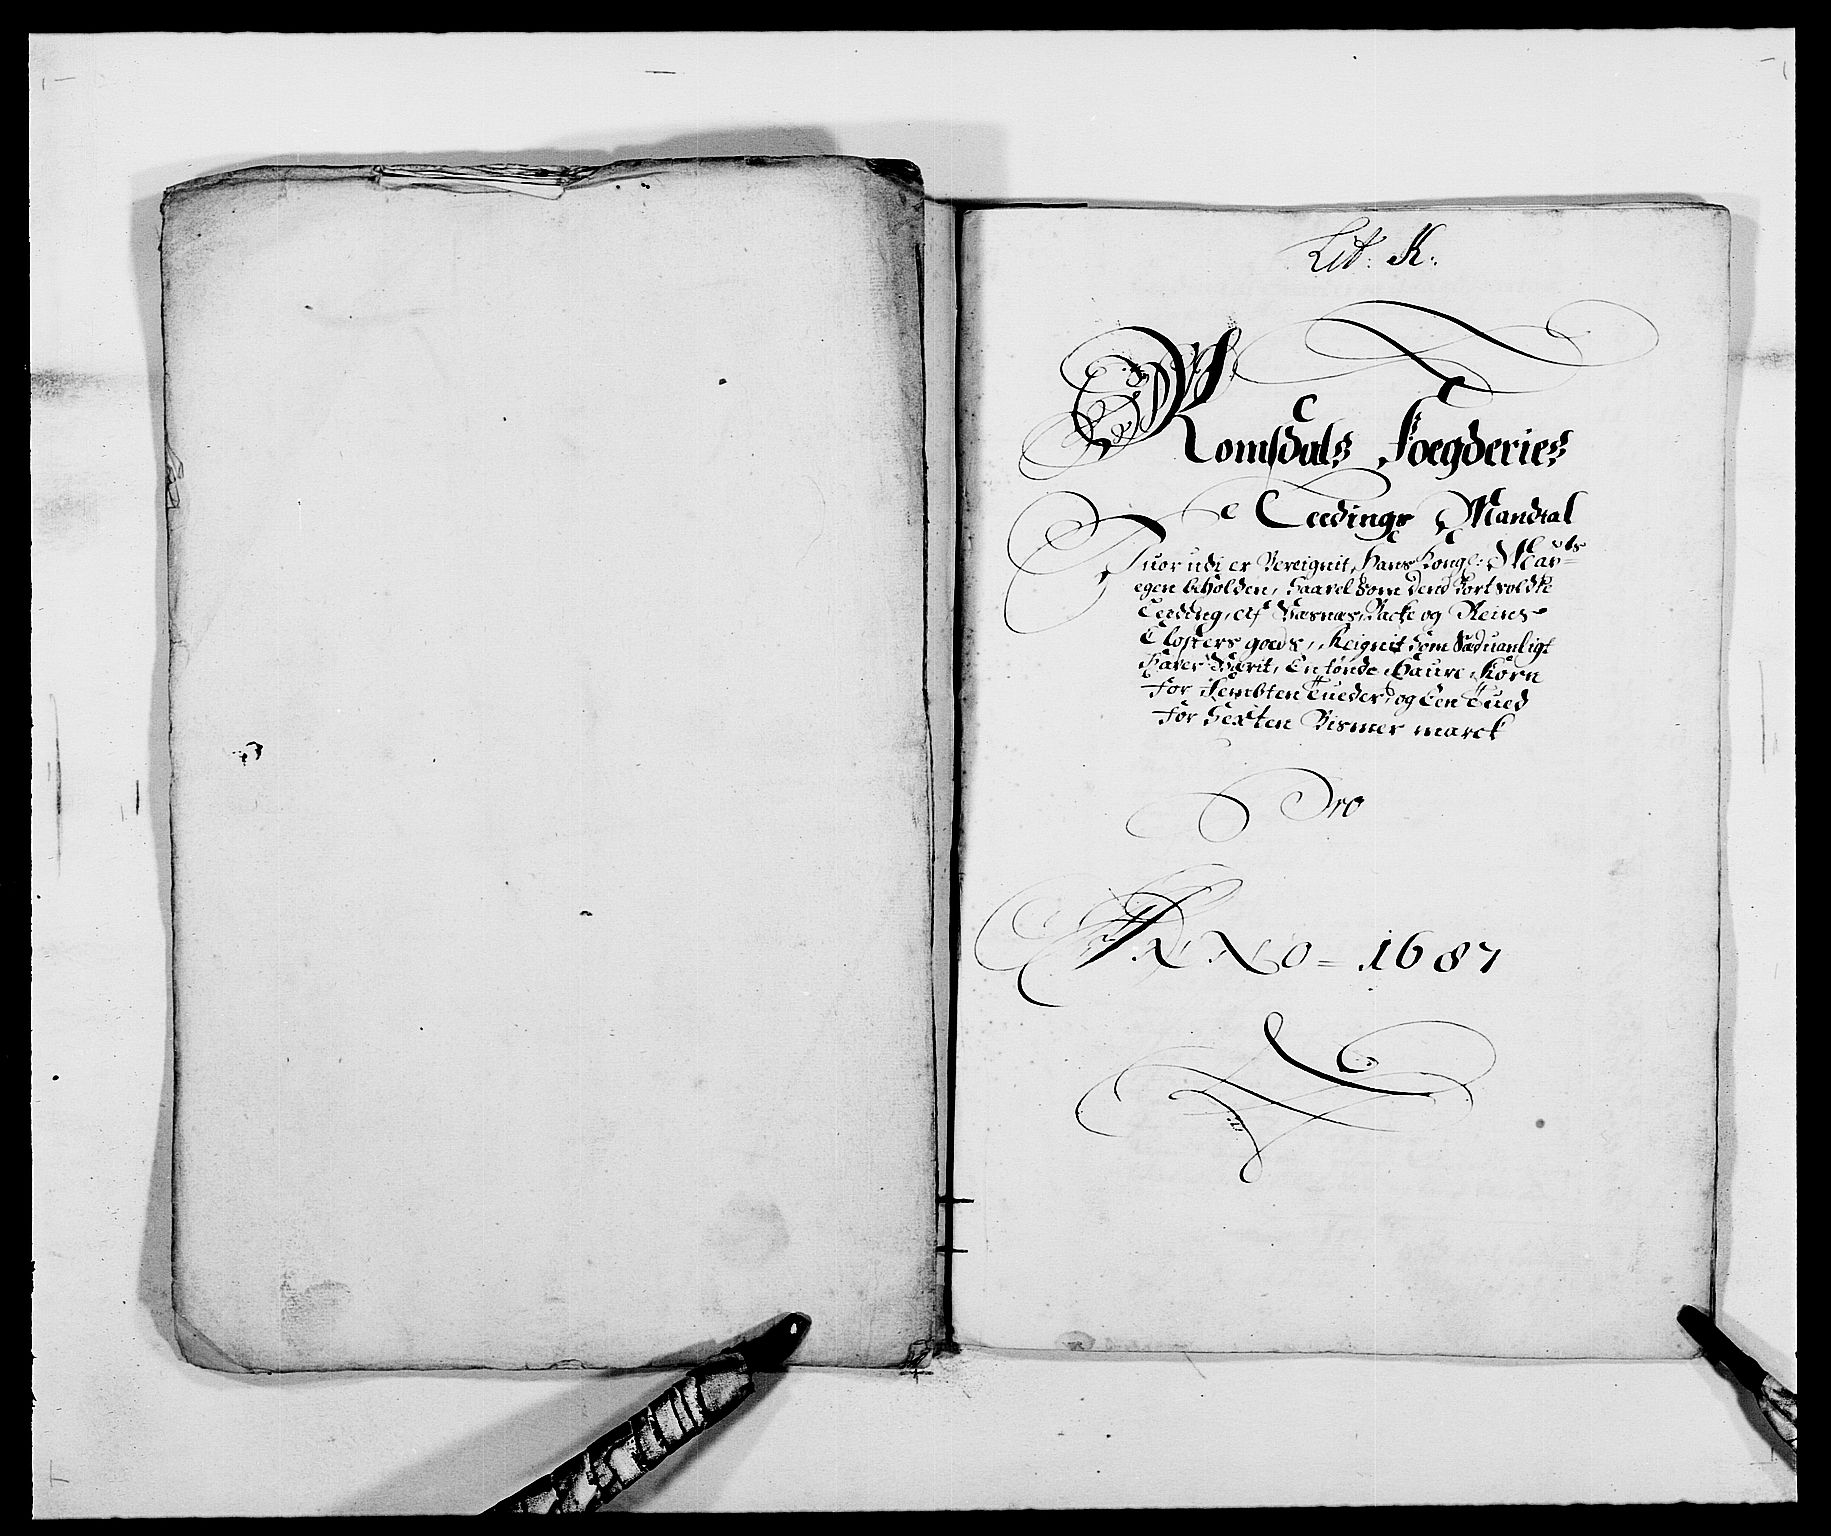 Lit: K:
Romsdals Foegderies
Teedings Mandtal
Huor udi er Bereignit, Hans Kongl: May:ts
egen beholden, Saavel som dend bortsoldte
Teeding, Af Næsnæs, Backe og Reins
Closters goeds, Reignit som Sæduanligt
Haver Værit, En tønde Haure Korn
for Sembten Tueder, og Een Tued
for Sexten Bismer marck
Pro
ANNO = 1687